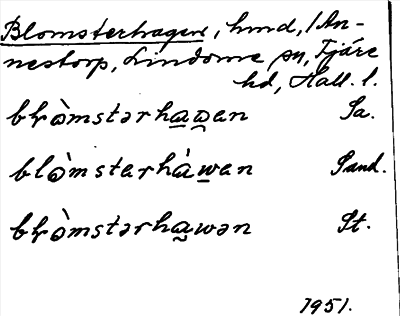 Blomsterhagen, hmd, / An-
nestorp, Lindome sn, Fjäre
hd, Hall. l.
bḷòmstərhaɷ̯an Sa.
blòmstərhàwan Sand.
bḷòmstərhawən St.
1951.